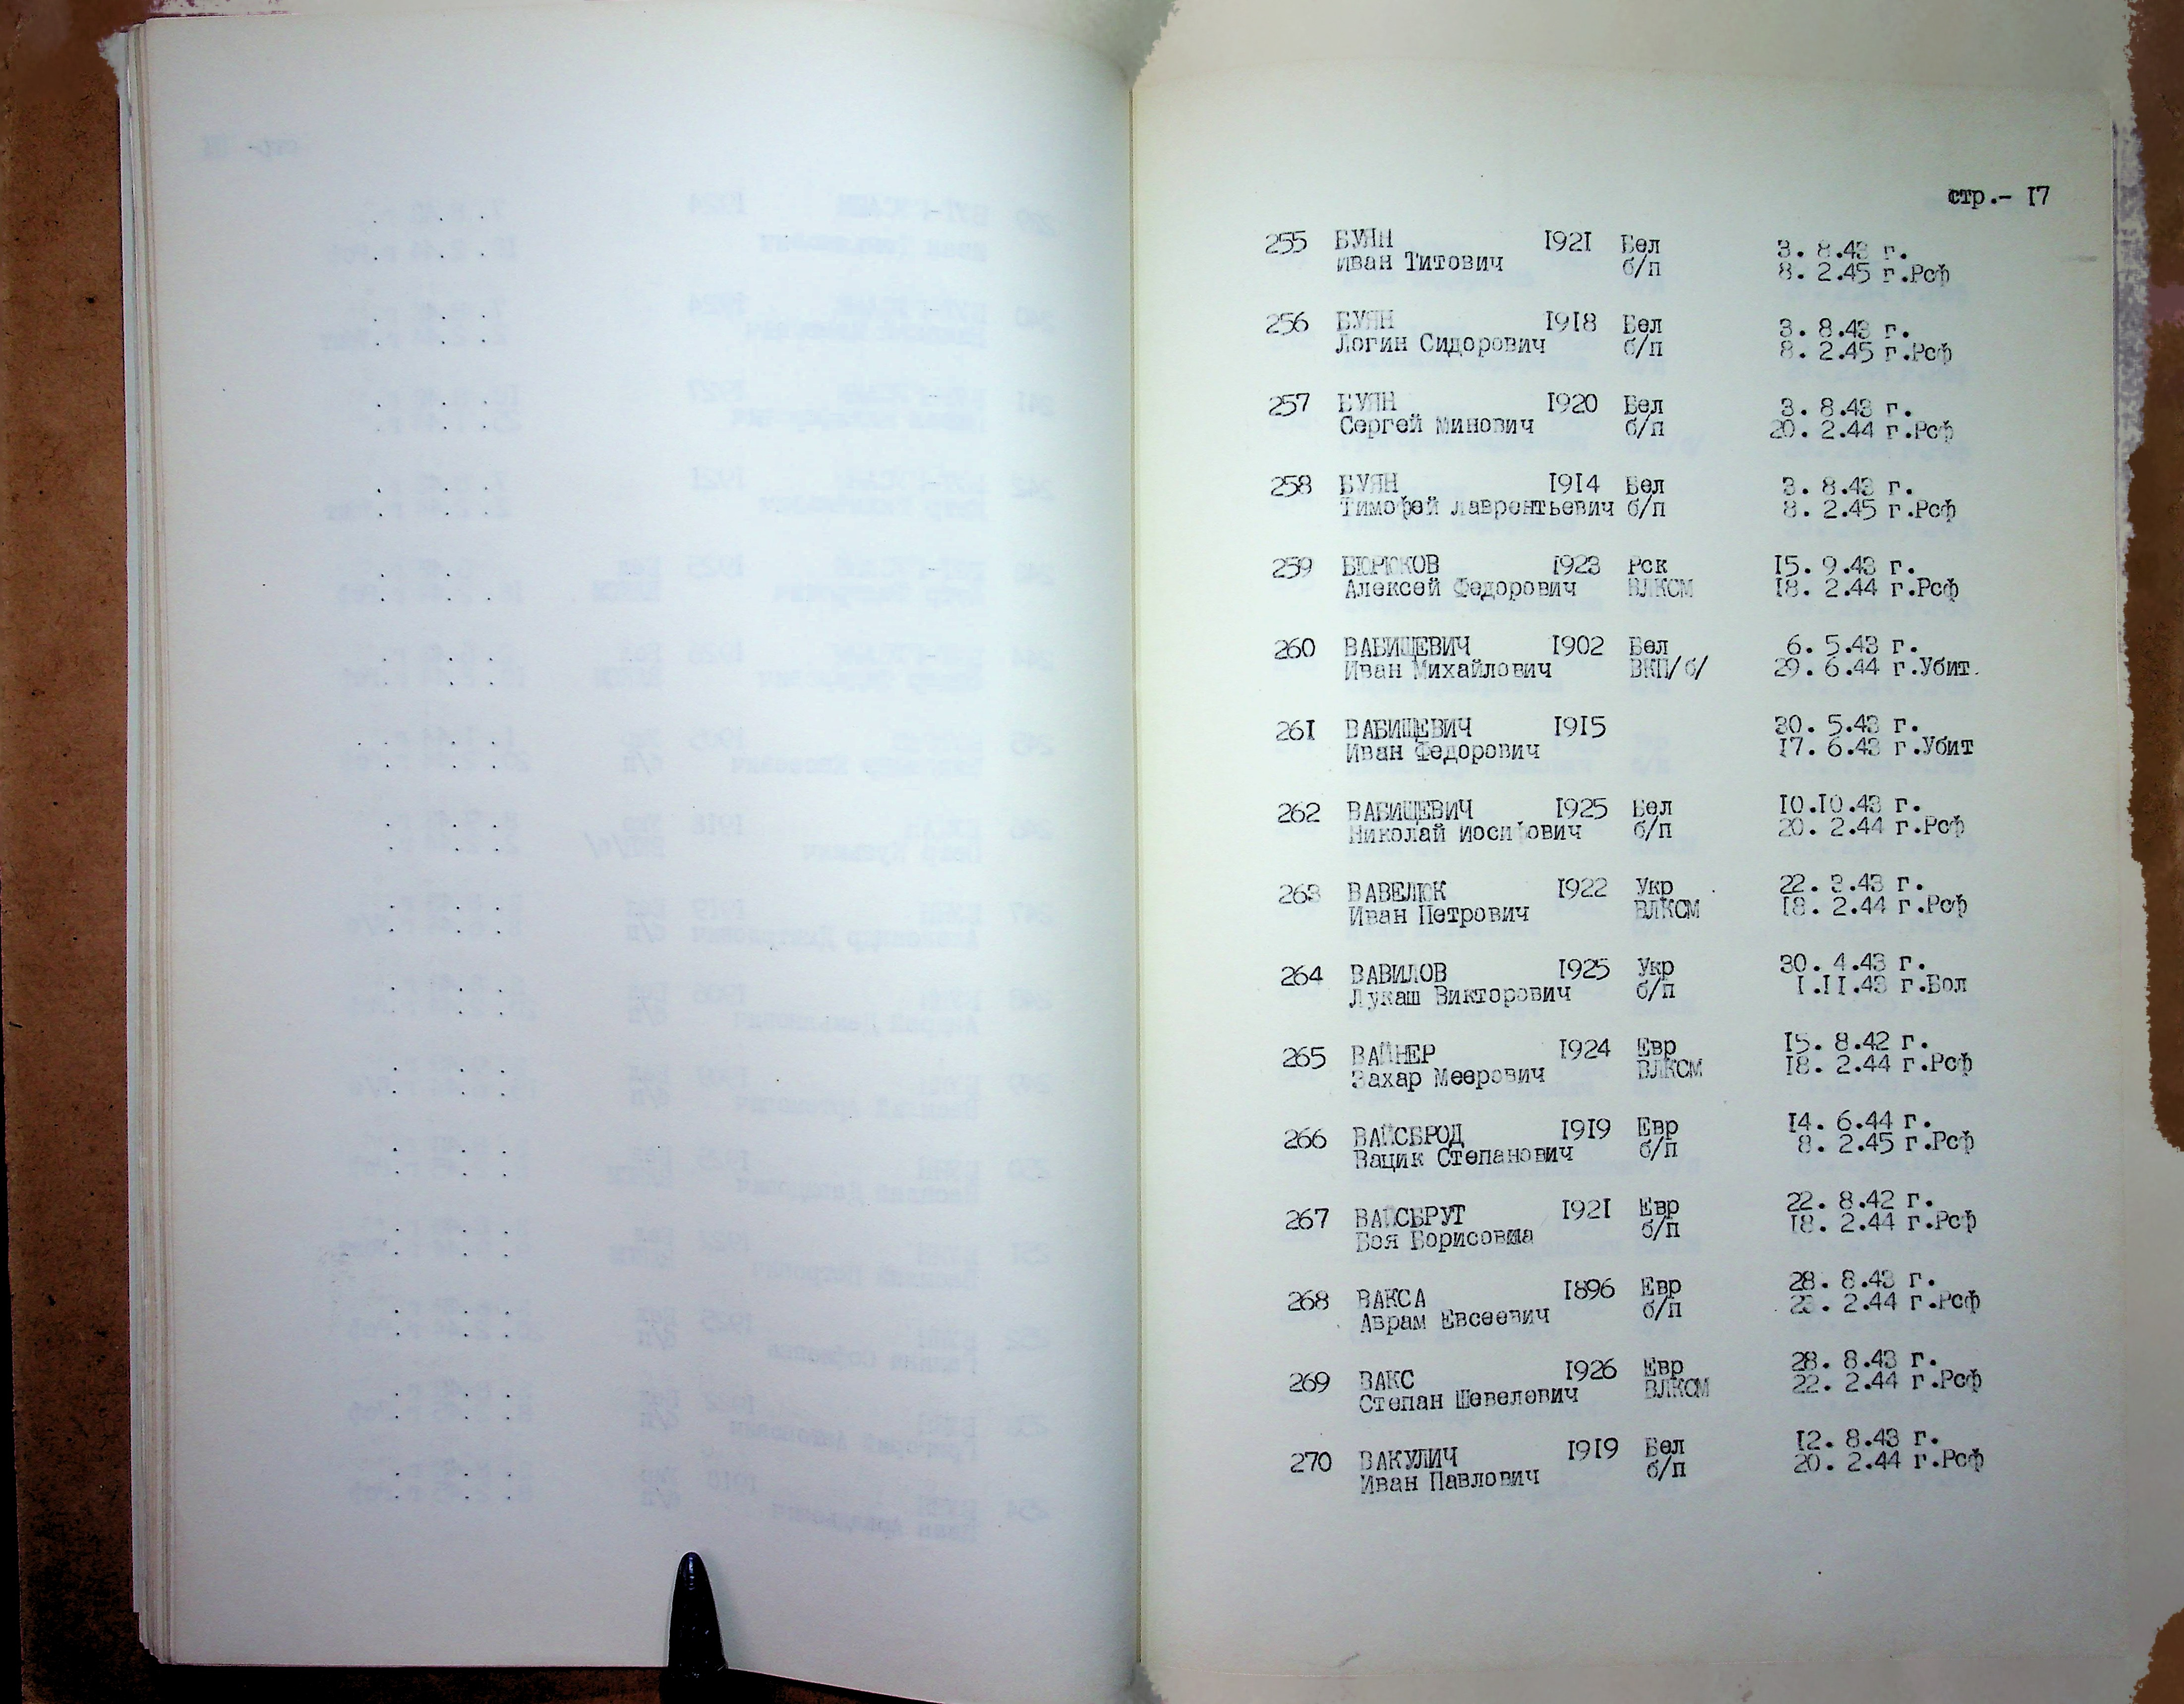 стр.- 17
255 БУЯН 1921 Бел 3. 8.43 г.
Иван Титович б/п 8. 2.45 г.Рсф
256 БУЯН 1918 Бел 3. 8.43 г.
Логин Сидорович б/п 8. 2.45 г.Рсф
257 БУЯН 1920 Бел 3. 8.43 г.
Сергей Минович б/п 20. 2.44 г.Рсф
258 БУЯН 1914 Бел 3. 8.43 г.
Тимофей Лаврентьевич б/п 8. 2.45 г.Рсф
259 БЮРЮКОВ 1923 Рск 15. 9.43 г.
Алексей Федорович ВЛКСМ 18. 2.44 г.Рсф
260 ВАБИЩЕВИЧ 1902 Бел 6. 5.43 г.
Иван Михайлович ВКП/б/ 29. 6.44 г.Убит.
261 ВАБИЩЕВИЧ 1915 30. 5.43 г.
Иван Федорович 17. 6.43 г.Убит
262 ВАБИЩЕВИЧ 1925 Бел 10.10.43 г.
Николай Иосифович б/п 20. 2.44 г.Рсф
263 ВАВЕЛЮК 1922 Укр 22. 3.43 г.
Иван Петрович ВЛКСМ 18. 2.44 г.Рсф
264 ВАВИЛОВ 1925 Укр 30. 4.43 г.
Лукаш Викторович б/п 1.11.43 г.Бол
265 ВАЙНЕР 1924 Евр 15. 8.42 г.
Захар Меерович ВЛКСМ 18. 2.44 г.Рсф
266 ВАЙСБРОД 1919 Евр 14. 6.44 г.
Вацик Степанович б/п 8. 2.45 г.Рсф
267 ВАЙСБРУТ 1921 Евр 22. 8.42 г.
Борисовна б/п 18. 2.44 г.Рсф
268 ВАКСА 1896 Евр 28. 8.43 г.
Аврам Евсеевич б/п 2.44 г.Рсф
269 ВАКС 1926 Евр 28. 8.43 г.
Степан Шевелевич ВЛКСМ 22. 2.44 г.Рсф
270 ВАКУЛИЧ 1919 Бел 12. 8.43 г.
Иван Павлович б/п 20. 2.44 г.Рсф